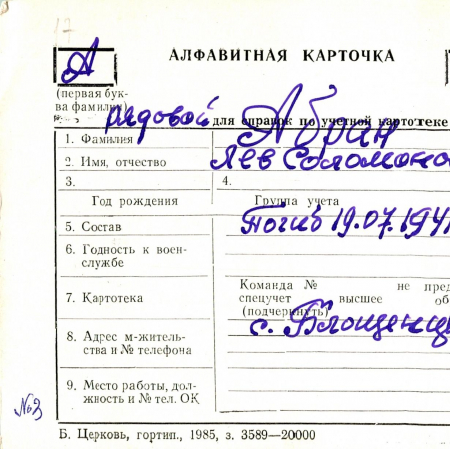 17
А
АЛФАВИТНАЯ КАРТОЧКА
(первая бук-
ва фамилии)
рядовой для справок по учетной картотеке
1. Фамилия Абрин
2. Имя, отчество Лев Соломоно
3. 4.
Год рождения Группа учета
5. Состав Погиб 19.07.194
6. Годность к воен-
службе
Команда № не пред
7. Картотека спецучет высшее об
(подчеркнуть)
с. Блощенц
8. Адрес м-житель-
ства и № телефона
9. Место работы, дол-
жность и № тел. ОК
№3
Б. Церковь, гортип., 1985, з. 3589—20000